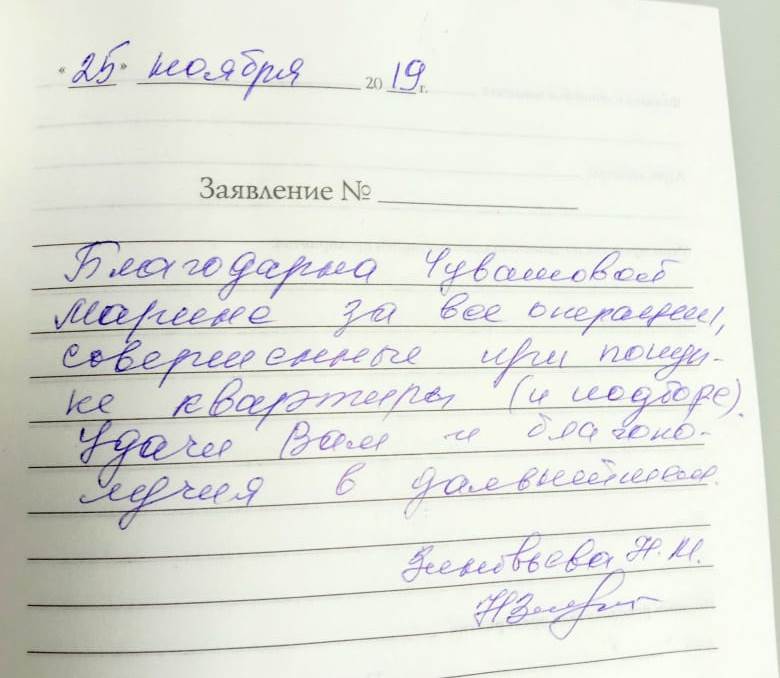 « 25 » ноября 2019 г.
Заявление №
Благодарна Чувашовой
Марине за все операции,
совершенные при покуп-
ке квартиры (и подборе).
Удачи Вам и благопо-
лучия в дальнейшем.
Зиновьева Н. М.